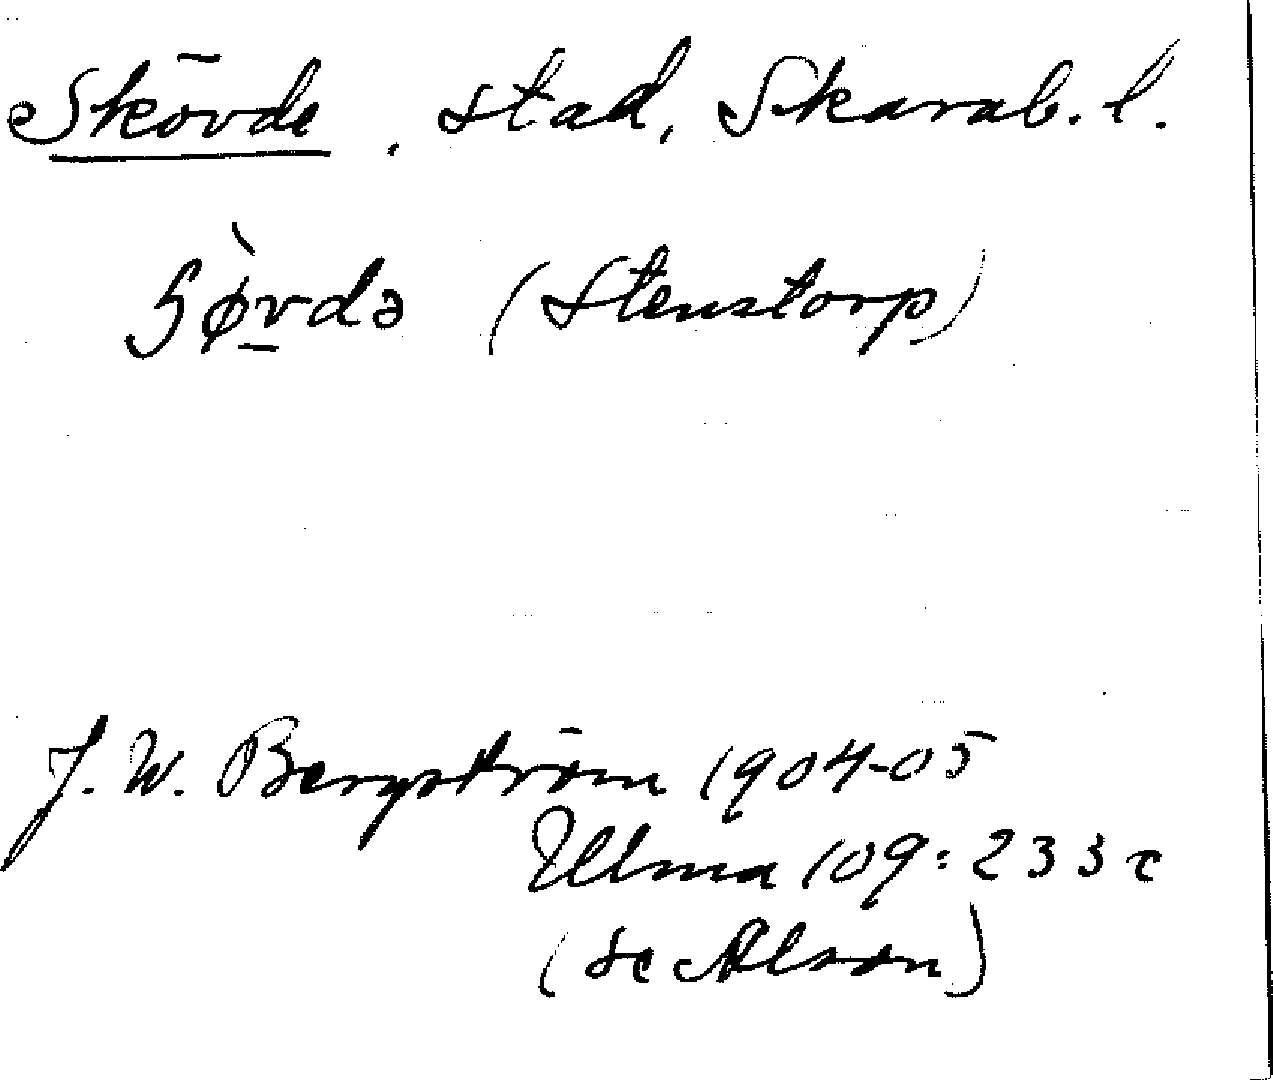 Skövde, stad, Skarab. l.
ʂø̀v̲də (Stenstorp)
J. W. Bergström 1904-05
Ulma 109:233 c
(se Alson)